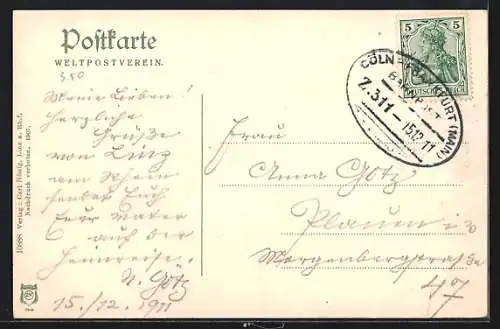 Postkarte
WELTPOSTVEREIN.
350
Meine Lieben!
Herzliche
Grüße
von Linz
am Rhein
sendet Euch
Euer Vater
auf der
Heimreise.
N. Götz
15./12. 1911
Frau
Anna Götz
Plauen i/v
Morgenbergstraße
47
5 5
DEUTSCHES REICH
CÖLN - FRANKFURT (MAIN)
BAHNPOST
Z.311 - 15.12.11
10688 Verlag: Carl Rönig, Linz a. Rh.
Nachdruck verboten. 1907.